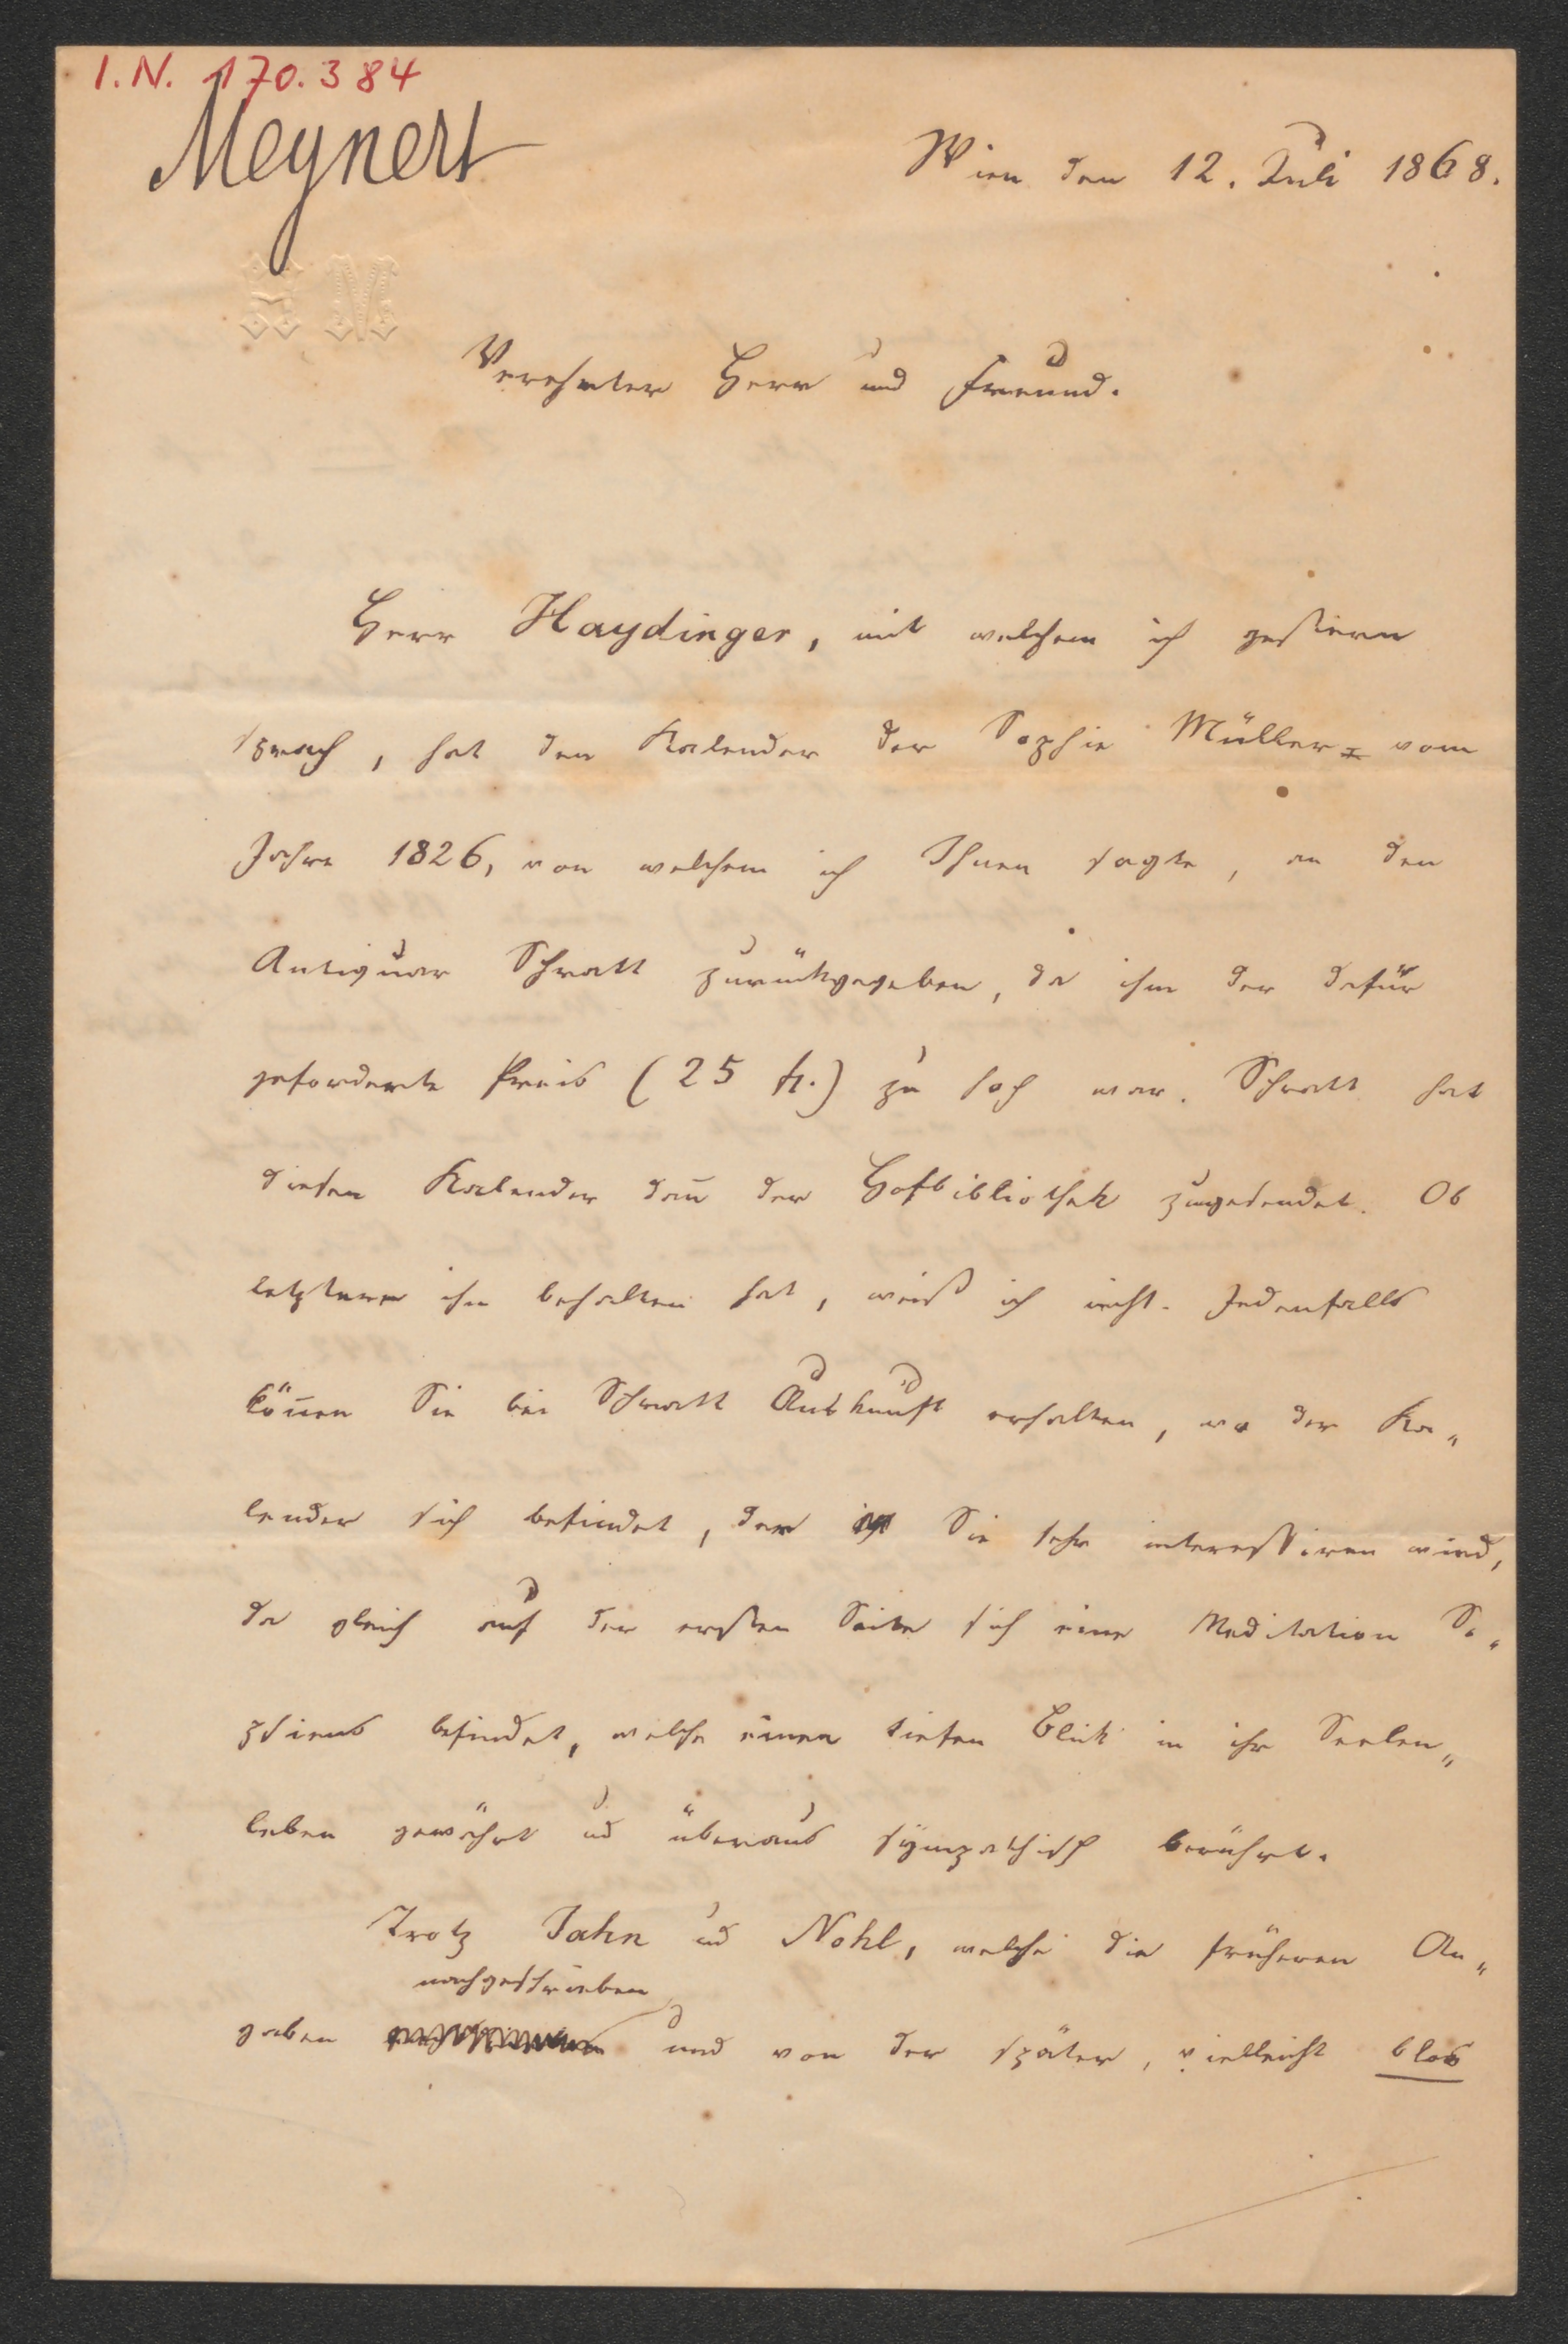 I.N. 170.384
Meynert
Wien den 12. Juli 1868.
Verehrter Herr und Freund.
Herr Haydinger, mit welchem ich gestern
sprach, hat den Kalender der Sophie Müller vom
Jahre 1826, von welchem ich Ihnen sagte, an den
Antiquar Schratt zurückgegeben, da ihm der dafür
geforderte Preis (25 fl.) zu hoch war. Schratt hat
diesen Kalender dan̄ der Hofbibliothek zugesendet. Ob
letztere ihn behalten hat, weiß ich nicht. Jedenfalls
kön̄en Sie bei Schratt Auskunft erhalten, wo der Ka„
lender sich befindet, der Sie sehr interessiren wird,
da gleich auf der ersten Seite sich eine Meditation So„
phiens befindet, welche einen tiefen Blick in ihr Seelen„
leben gewährt ud überaus sympathisch berührt.
Trotz Jahn ud Nohl, welche die früheren An„
nachgeschrieben
gaben und von der später, vielleicht blos